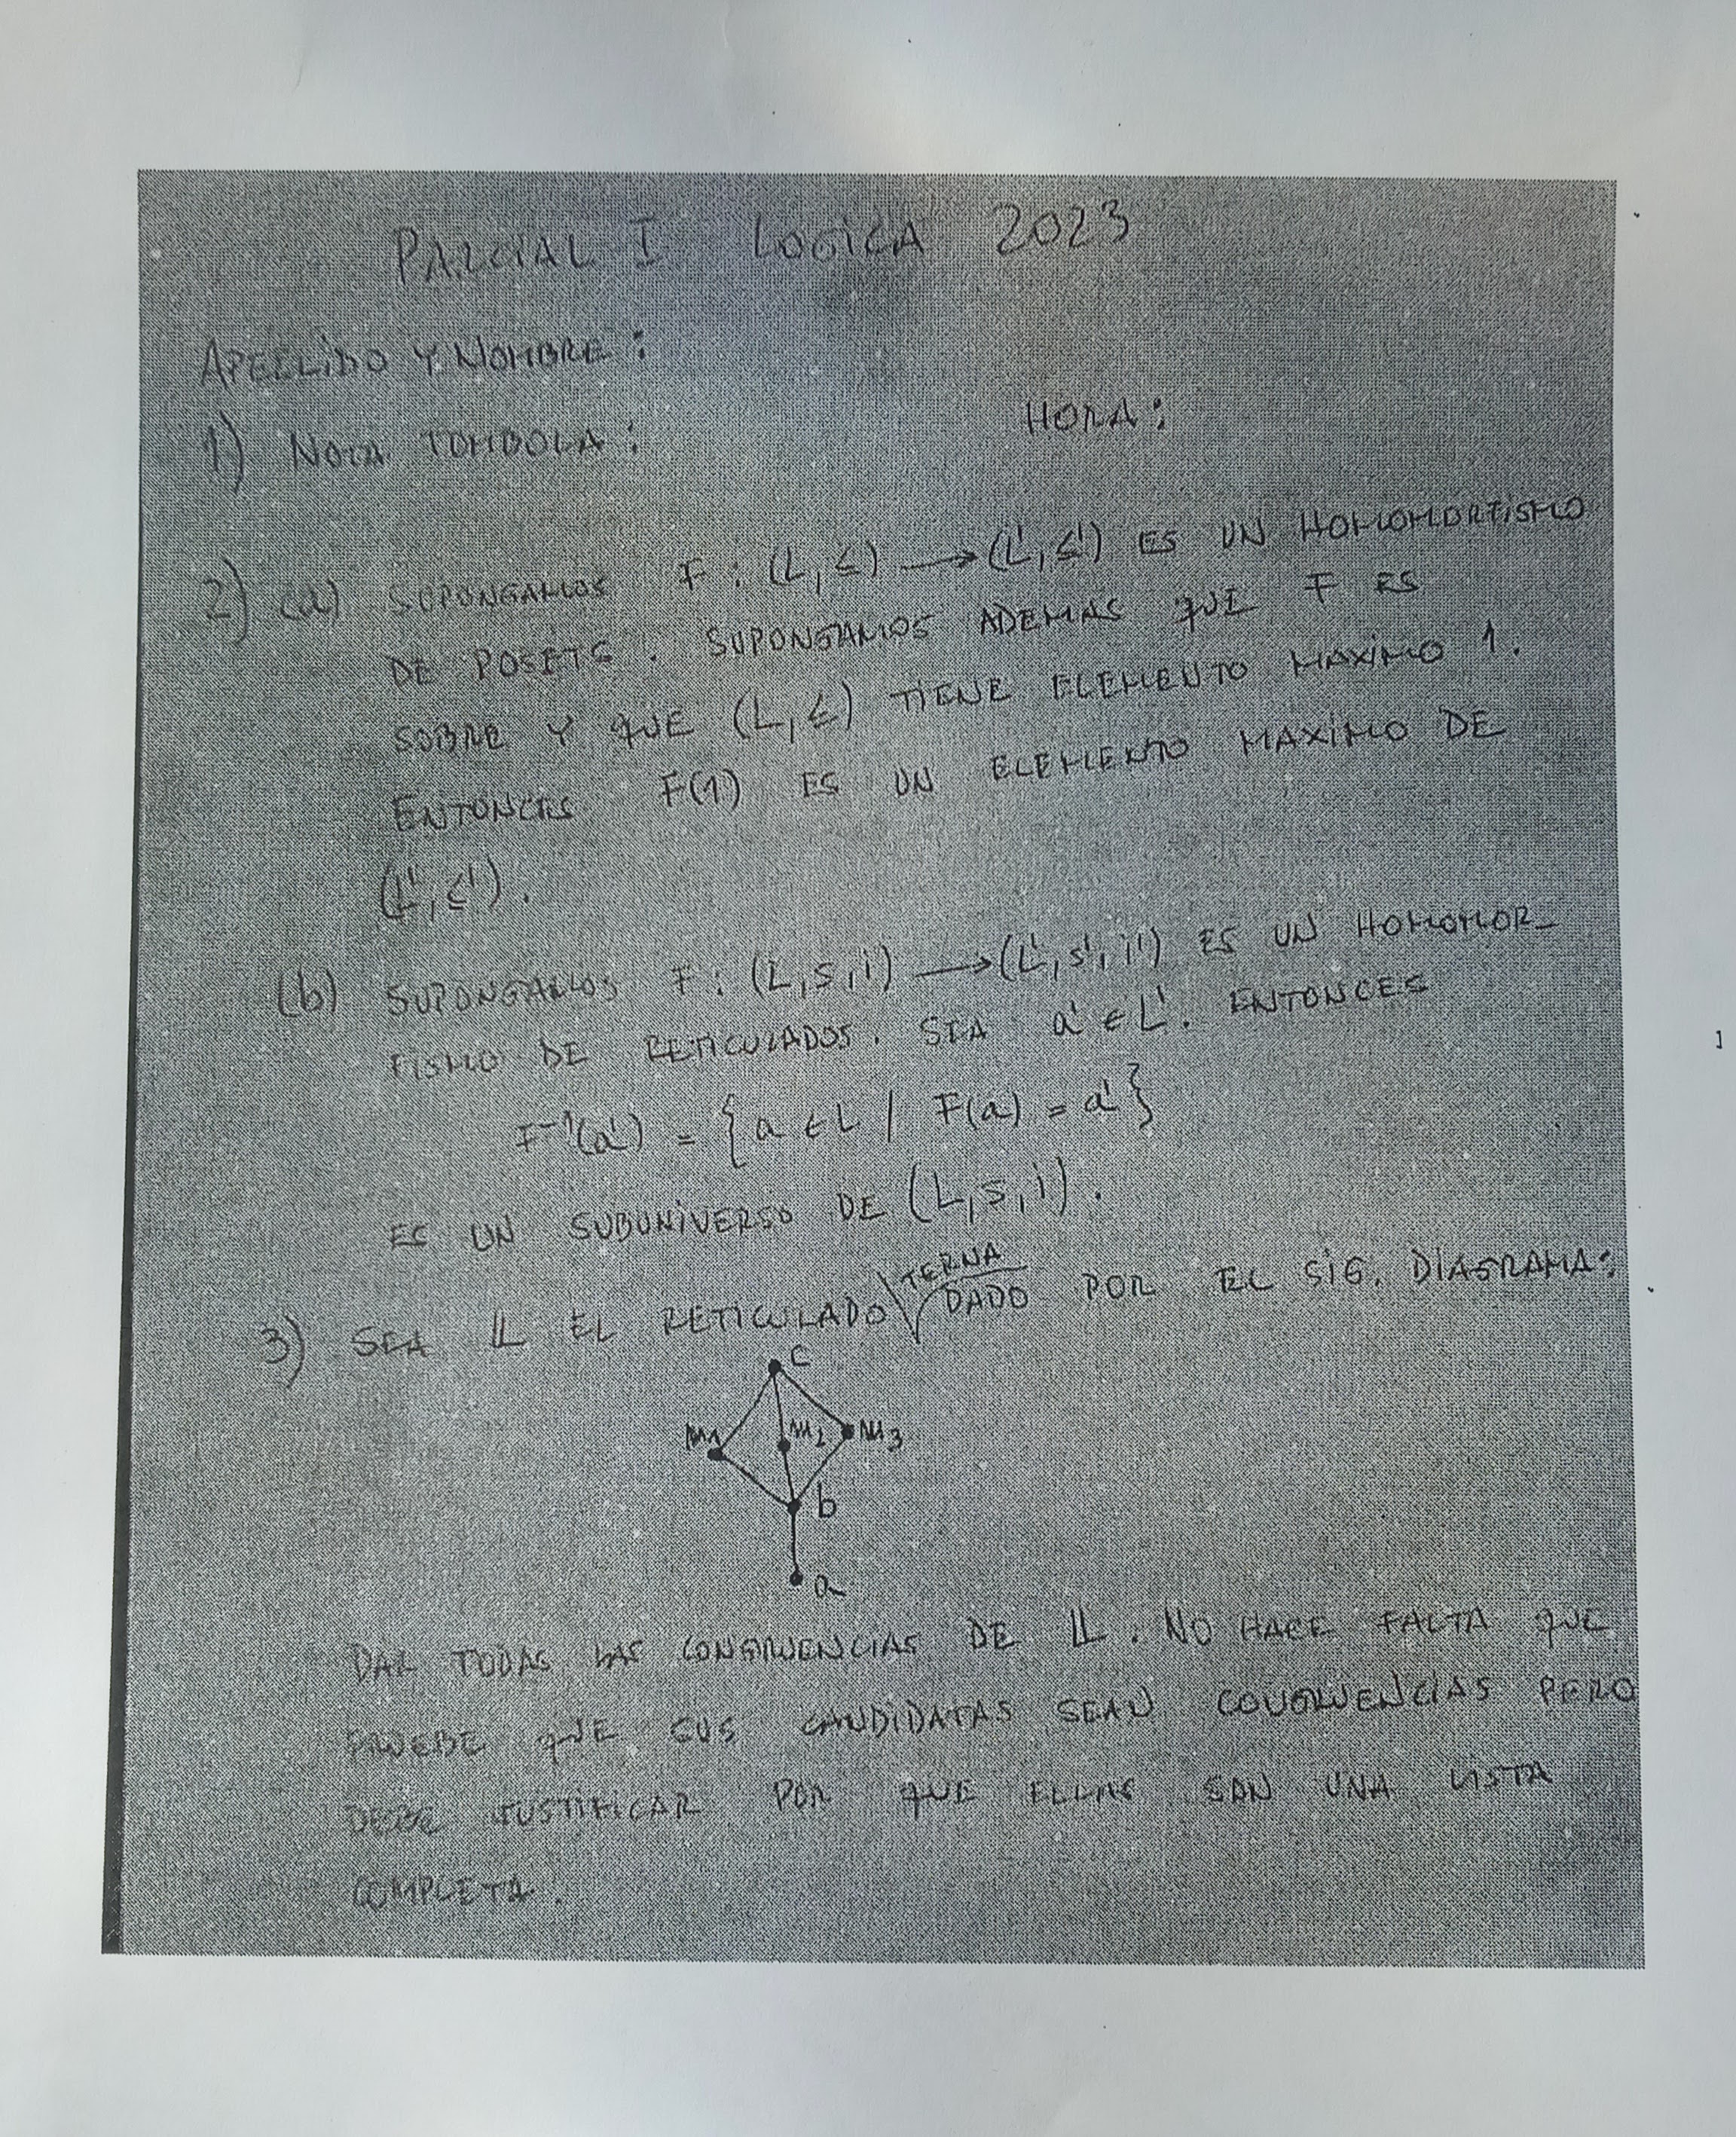 PARCIAL I LOGICA 2023
APELLIDO Y NOMBRE:
HORA:
1) NOTA TOMBOLA:
2) (a) SUPONGAMOS F: (L,≤) → (L',≤') ES UN HOMOMORFISMO
DE POSETS. SUPONGAMOS ADEMAS QUE F ES
SOBRE Y QUE (L,≤) TIENE ELEMENTO MAXIMO 1.
ENTONCES F(1) ES UN ELEMENTO MAXIMO DE
(L',≤').
(b) SUPONGAMOS F: (L,s,i) → (L',s',i') ES UN HOMOMOR-
FISMO DE RETICULADOS. SEA a' ∈ L'. ENTONCES
F⁻¹(a') = {a ∈ L / F(a) = a'}
ES UN SUBUNIVERSO DE (L,s,i).
TERNA
3) SEA 𝕃 EL RETICULADO DADO POR EL SIG. DIAGRAMA:
c
m1 m2 m3
b
a
DAR TODAS LAS CONGRUENCIAS DE 𝕃. NO HACE FALTA QUE
PRUEBE QUE SUS CANDIDATAS SEAN CONGRUENCIAS PERO
DEBE JUSTIFICAR POR QUE ELLAS SON UNA LISTA
COMPLETA.